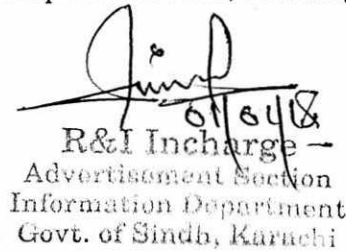 01/04/18
R&I Incharge
Advertisement Section
Information Department
Govt. of Sindh, Karachi